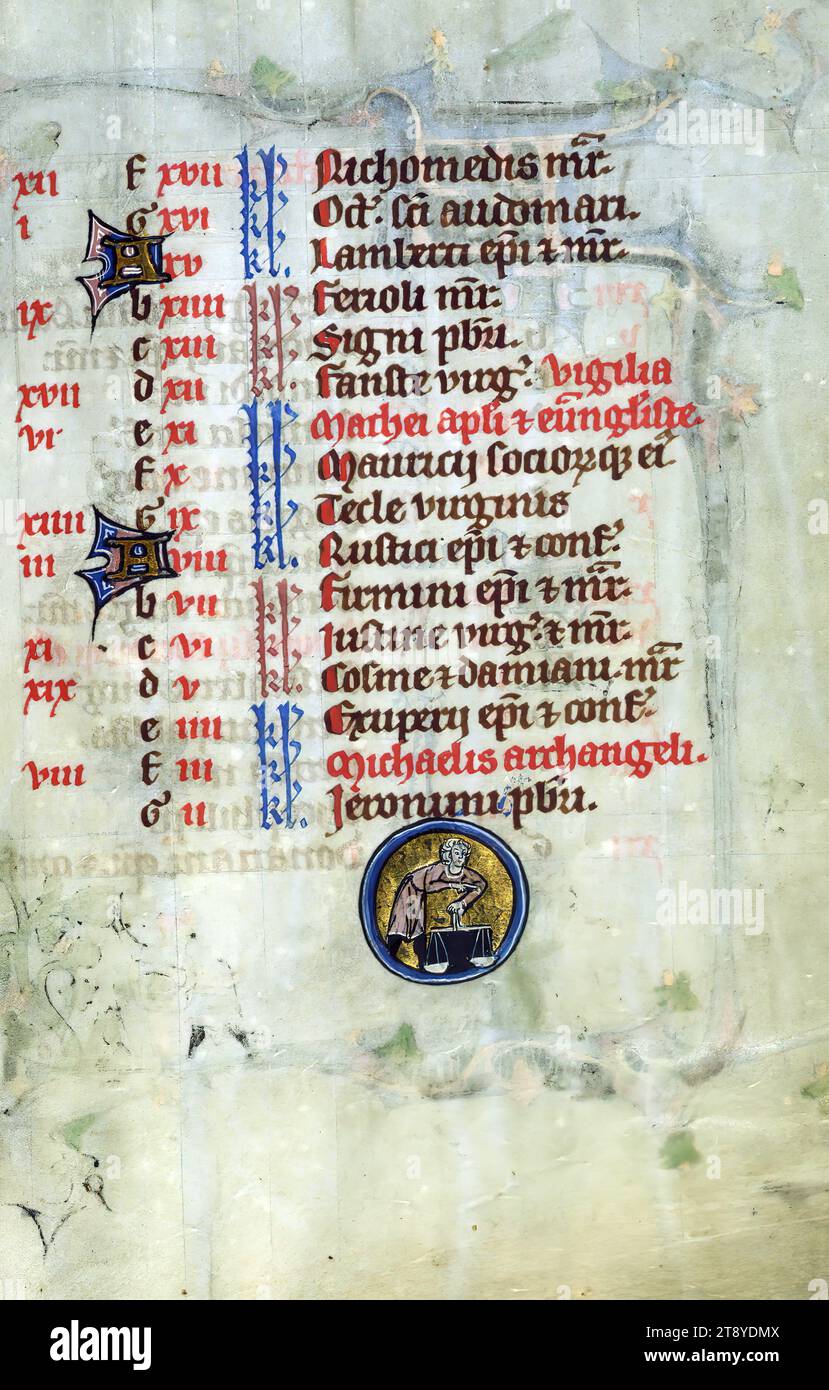 xii f xvii kl. Nichomedis mr.
i G xvi kl. Oct. sci audomari.
A xv kl. Lamberti epi & mr.
ix b xiiii kl. Ferioli mr.
c xiii kl. Signi pbri.
xvii d xii kl. Fauste virg. vigilia
vi e xi kl. Mathei apli & euungliste.
f x kl. Mauricii socioꝝ qꝫ ei
xiiii G ix kl. Tecle virginis
iii A viii kl. Rustici epi & conf.
b vii kl. Firmini epi & mr.
xi c vi kl. Iustine virg. & mr.
xix d v kl. Cosme & damiani mr
e iiii kl. Exuperii epi & conf.
viii f iii kl. Michaelis archangeli.
G ii kl. Jeronimi pbri.
alamy
alamy
Image ID: 2T8YDMX
www.alamy.com